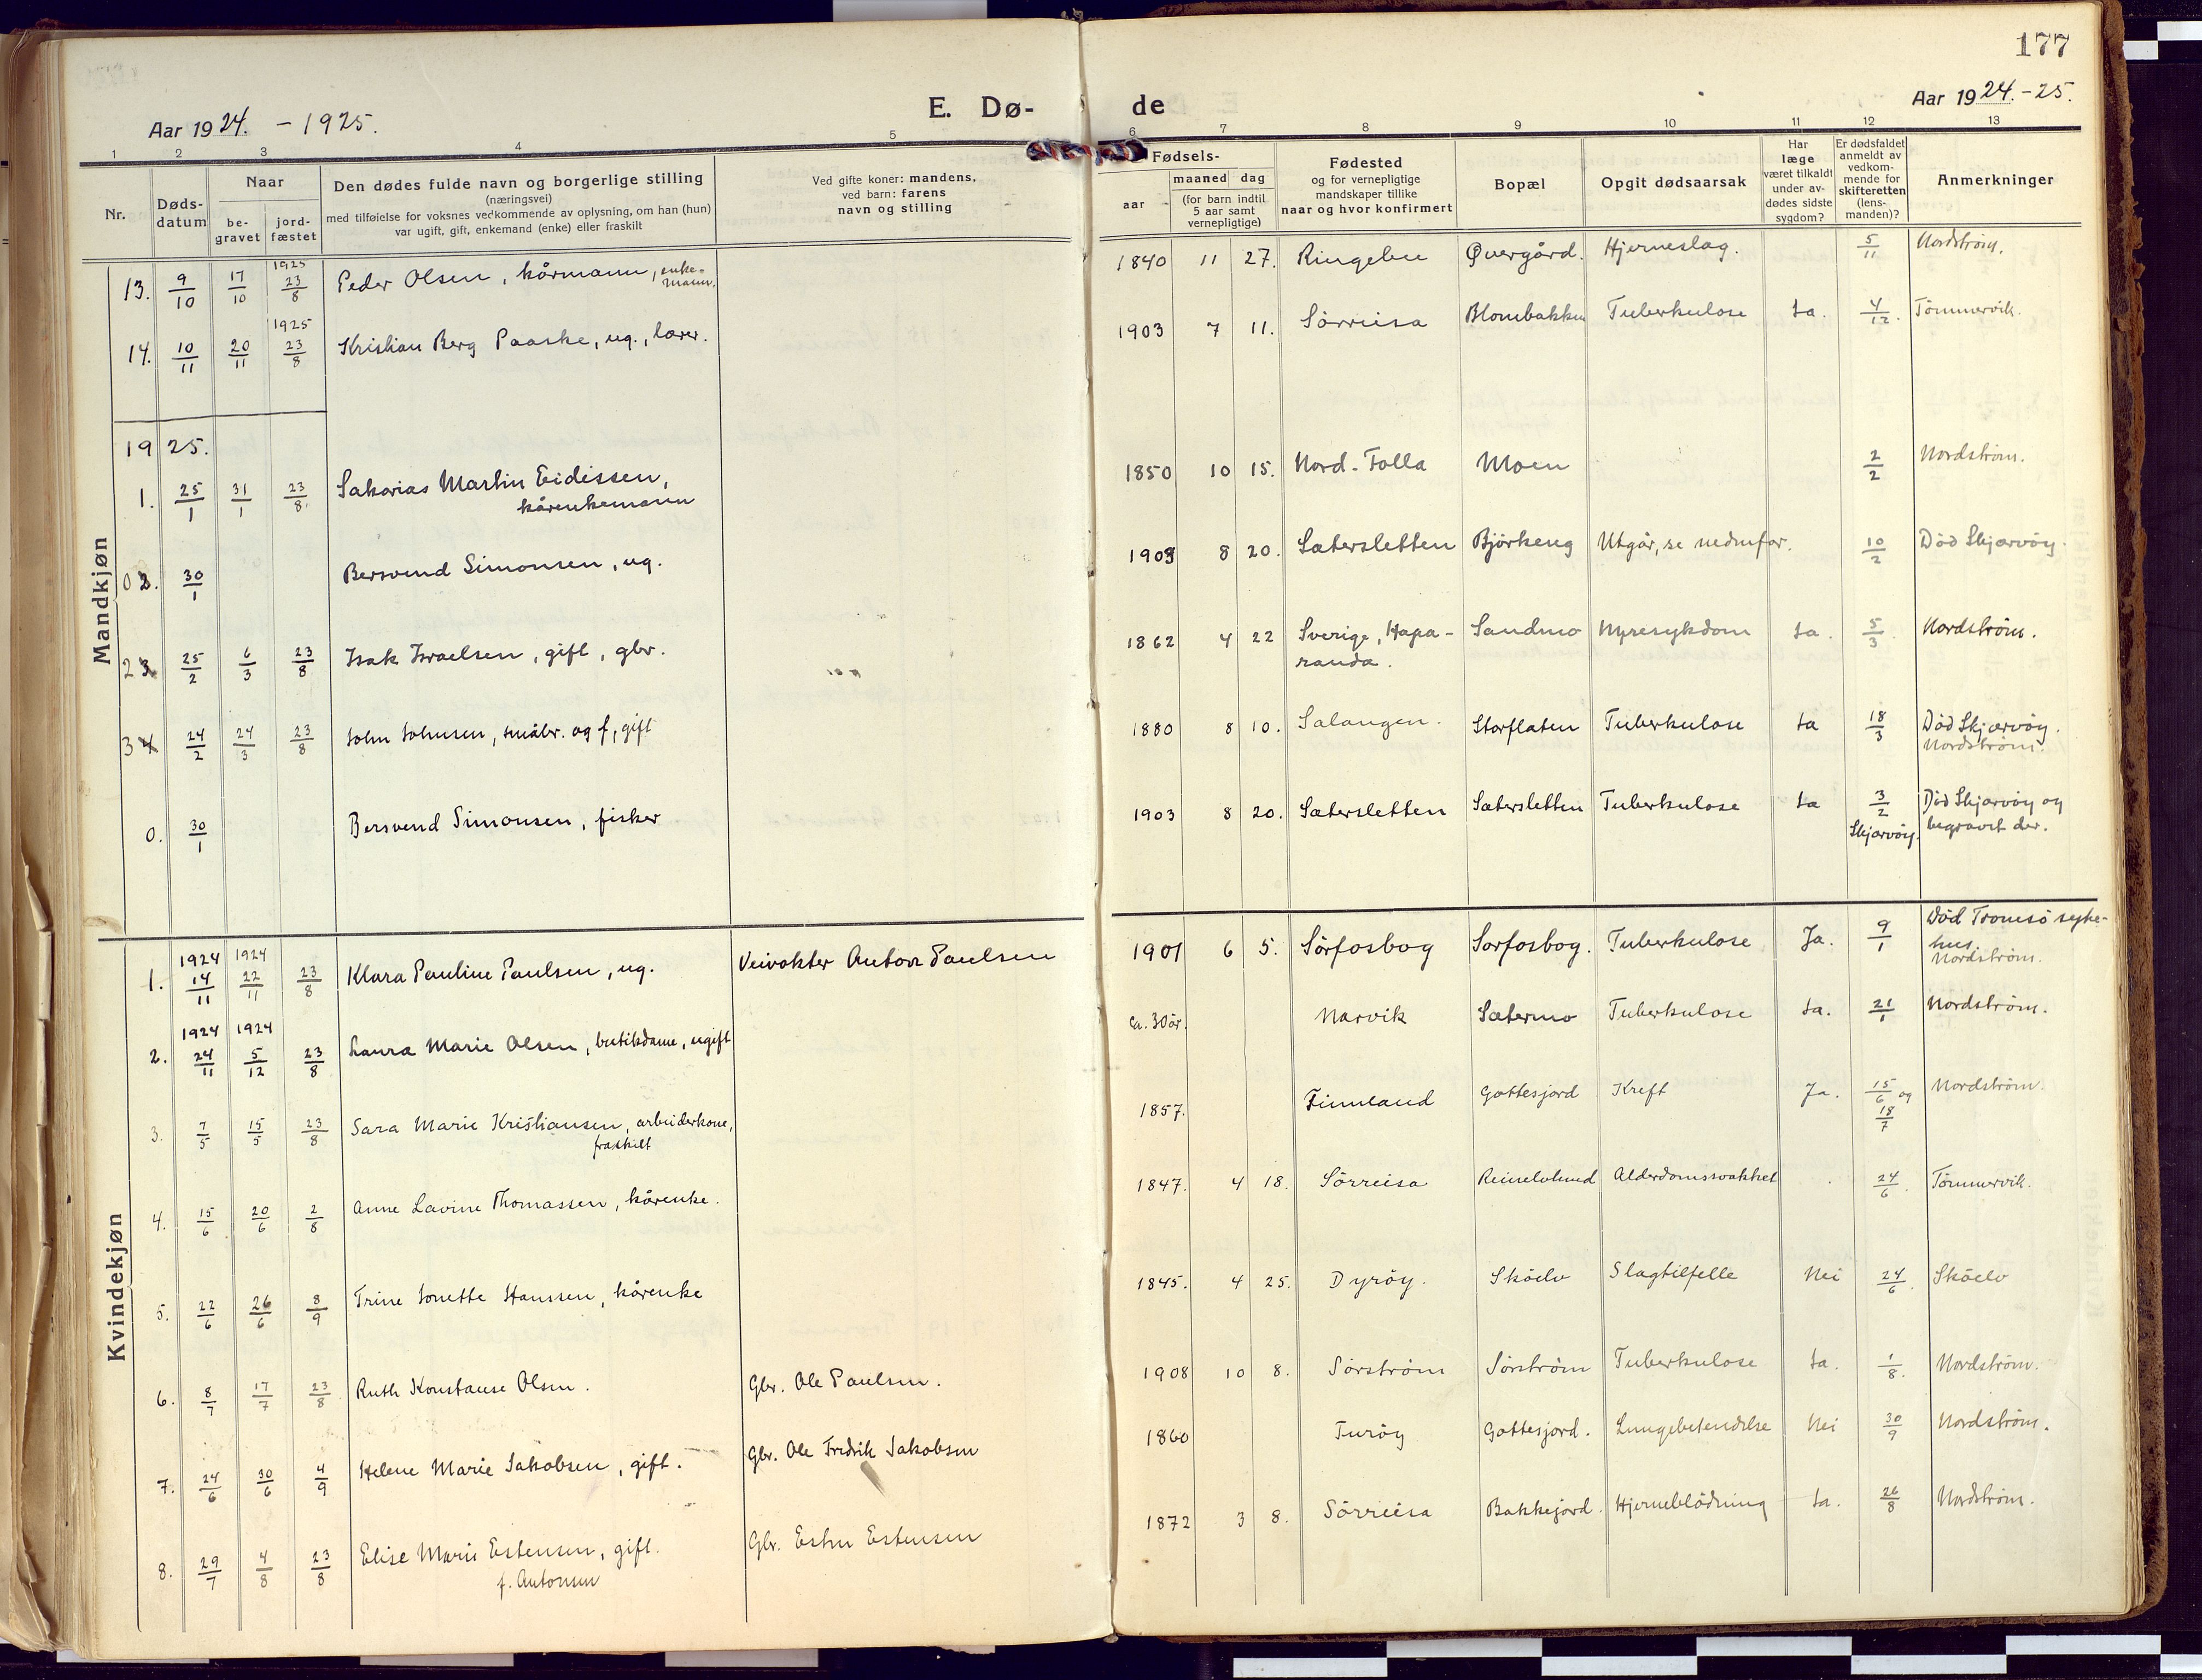 177
Aar 1924. - 1925.
E. Dø-
de
Aar 1924. - 25.
1 2 3 4 5 6 7 8 9 10 11 12 13
Nr.
Døds-
datum
Naar
be-
gravet
jord-
fæstet
Den dødes fulde navn og borgerlige stilling
(næringsvei)
med tilføielse for voksnes vedkommende av oplysning, om han (hun)
var ugift, gift, enkemand (enke) eller fraskilt
Ved gifte koner: mandens,
ved barn: farens
navn og stilling
Fødsels-
aar
maaned dag
(for barn indtil
5 aar samt
vernepligtige)
Fødested
og for vernepligtige
mandskaper tillike
naar og hvor konfirmert
Bopæl
Opgit dødsaarsak
Har
læge
været tilkaldt
under av-
dødes sidste
sygdom?
Er dødsfaldet
anmeldt av
vedkom-
mende for
skifteretten
(lens-
manden)?
Anmerkninger
Mandkjøn
13. 9/10 17/10 1925 23/8 Peder Olsen, kårmann, enke-
mann. 1840 11 27. Ringebu Øvergård. Hjerneslag. 5/11 Nordstrøm.
14. 10/11 20/11 1925 23/8 Kristian Berg Paaske, ug., lærer. 1903 7 11. Sørreisa Blombakken Tuberkulose Ja. 4/12. Tømmervik.
1925.
1. 25/1 31/1 23/8. Sakarias Martin Eidissen,
kårenkemann 1850 10 15. Nord-Folla Moen 2/2 Nordstrøm.
02. 30/1 Bersvend Simonsen, ug. 1903 8 20. Sætersletten Bjørkeng Utgår, se nedenfor. 10/2 Død Skjærvøy.
23 25/2 6/3 23/8 Isak Israelsen, gift, gbr. 1862 4 22 Sverige, Hapa-
randa. Sandmo Nyresykdom Ja. 5/3. Nordstrøm.
34 24/2 24/3 23/8 John Johnsen, småbr. og f, gift 1880 8 10. Salangen. Storflaten Tuberkulose Ja 18/3 Død Skjærvøy.
Nordstrøm.
0. 30/1 Bersvend Simonsen, fisker 1903 8 20. Sætersletten Sætersletten Tuberkulose Ja 3/2 Skjærvøy. Død Skjærvøy og
begravet der.
Kvindekjøn
1. 1924 14/11 1924 22/11 23/8 Klara Pauline Paulsen, ug. Veivokter Anton Paulsen 1901 6 5. Sørfosbog Sørfosbog. Tuberkulose Ja. 9/1 Død Tromsø syke-
hus.
Nordstrøm.
2. 1924 24/11 1924 5/12 23/8 Laura Marie Olsen, butikdame, ugift ca. 30 år. Narvik Sætermo Tuberkulose Ja. 21/1 Nordstrøm.
3. 7/5 15/5 23/8 Sara Marie Kristiansen, arbeiderkone,
fraskilt 1857. Finnland Gottesjord Kreft Ja. 15/6 og
18/7 Nordstrøm.
4. 15/6 20/6 2/8 Anne Lavine Thomassen, kårenke. 1847. 4 18. Sørreisa Reinelvlund Alderdomssvakhet 24/6. Tømmervik.
5. 22/6 26/6 8/9 Trine Jonette Hanssen, kårenke 1845. 4 25. Dyrøy. Skøelv Slagtilfelle Nei 24/6. Skøelv
6. 8/7 17/7 23/8 Ruth Konstanse Olsen. Gbr. Ole Paulsen. 1908 10 8. Sørstrøm Sørstrøm Tuberkulose Ja. 1/8. Nordstrøm.
7. 24/6 30/6 4/9 Helene Marie Jakobsen, gift. Gbr. Ole Fredrik Jakobsen 1860 Turøy Gottesjord. Lungebetendelse Nei 30/9 Nordstrøm.
8. 29/7 4/8 23/8 Elise Marie Estensen, gift.
f. Antonsen Gbr. Esten Estensen 1872 3 8. Sørreisa Bakkejord. Hjerneblødning Ja. 26/8 Nordstrøm.